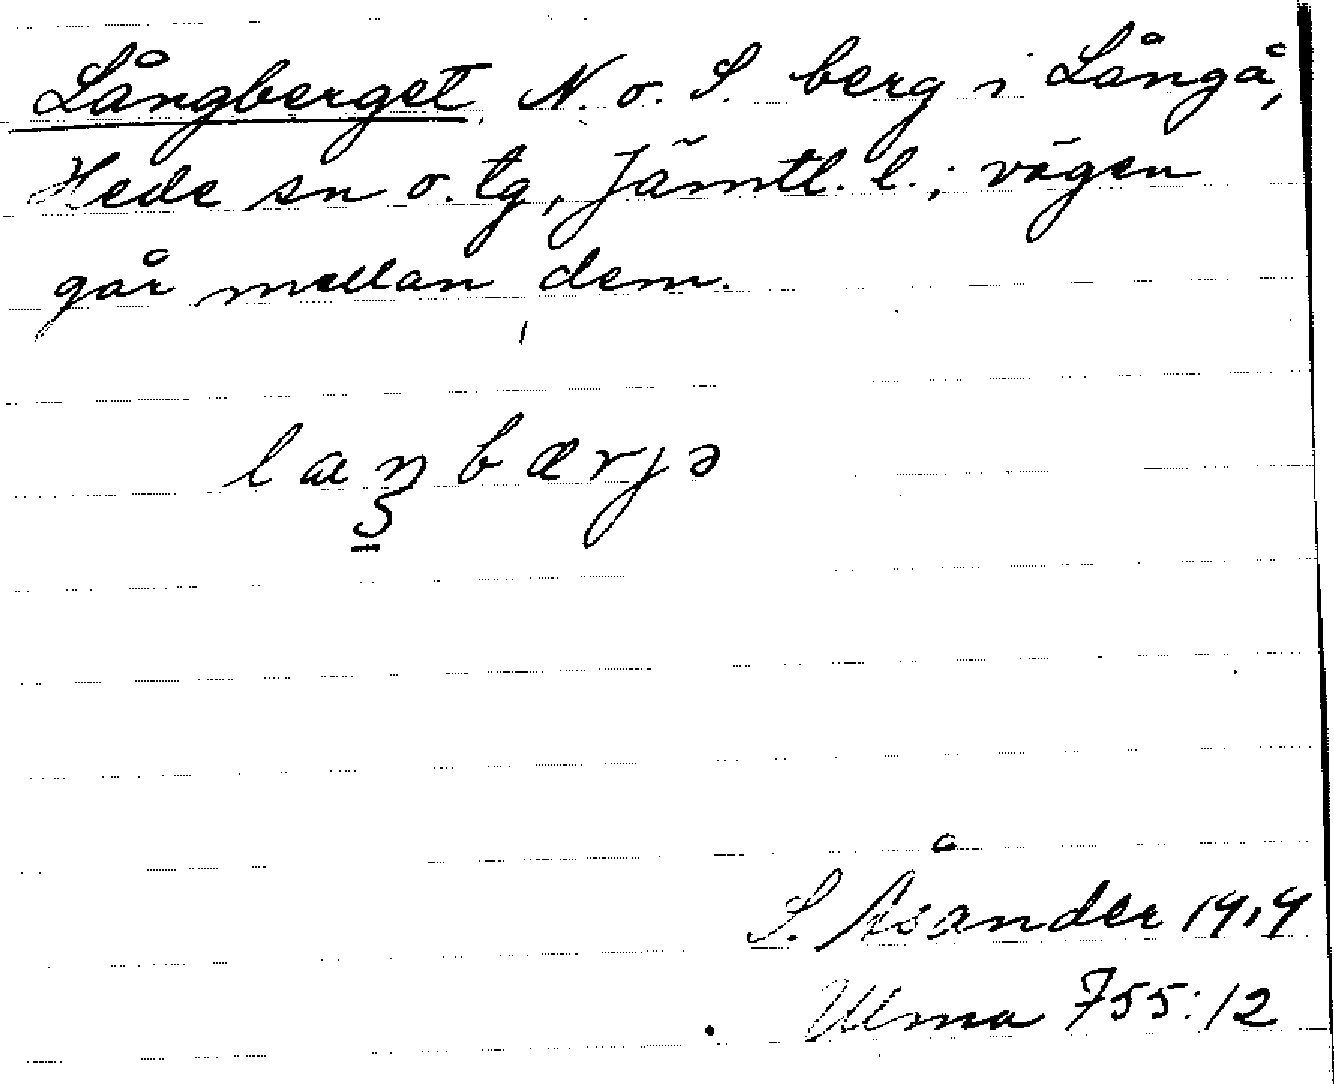 Långberget N. o. S. berg i Långå,
Hede sn o. tg, Jämtl. l.; vägen
går mellan dem.
laŋbærjə
S. Åsander 1919
Ulma 755:12